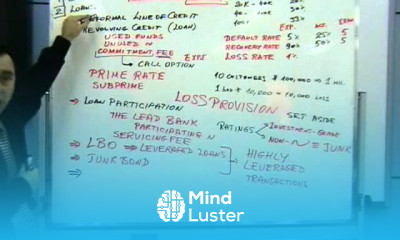 2 LOAN:
20K - 40K
INFORMAL LINE OF CREDIT
REVOLVING CREDIT (LOAN)
USED FUNDS
UNUSED
COMMITMENT FEE
CALL OPTION
DEFAULT RATE 5% 25% 5
RECOVERY RATE 90% 50% 5
LOSS RATE 1%
PRIME RATE
SUBPRIME
10 CUSTOMERS $ 100,000 → 1 MIL
→ LOAN PARTICIPATION
LOSS PROVISION
SET ASIDE
THE LEAD BANK
PARTICIPATING
SERVICING FEE
RATINGS
INVESTMENT-GRADE
NON-" ≡ JUNK
→ LBO → LEVERAGED LOANS
→ JUNK BOND
HIGHLY
LEVERAGED
TRANSACTIONS
Mind
Luster